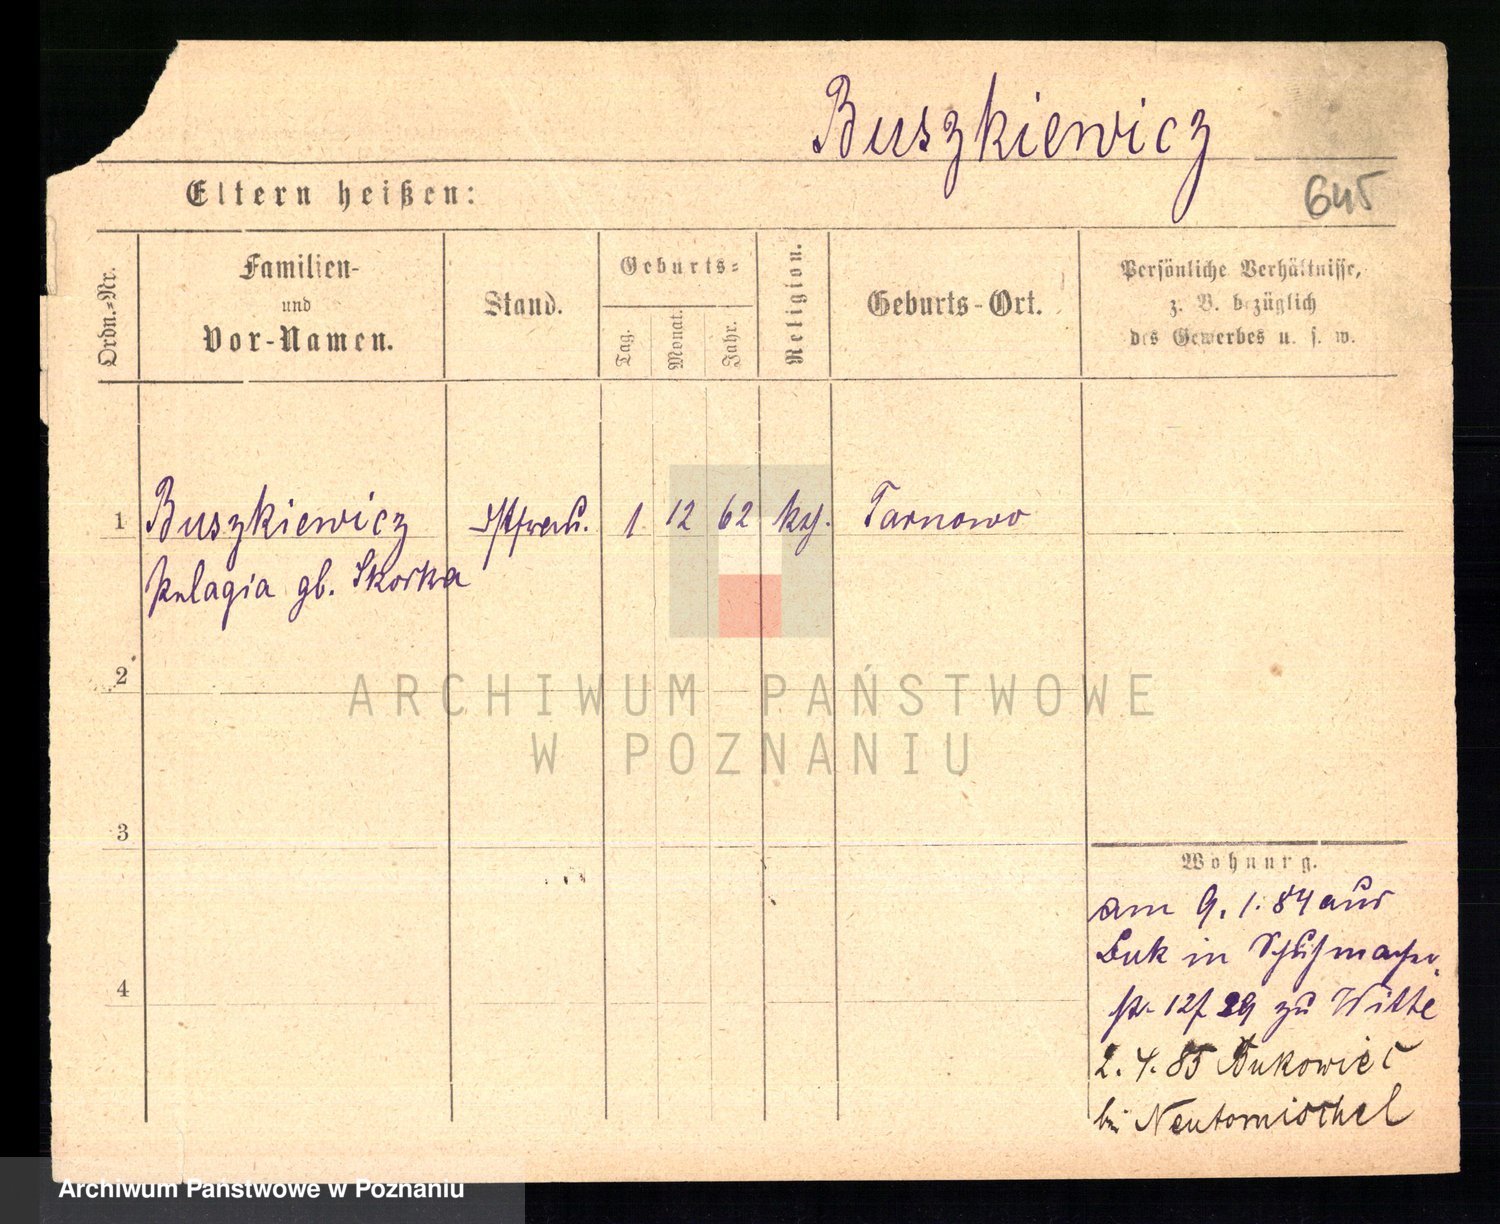 Buszkiewicz
645
Eltern heißen:
Ordn.-Nr.
Familien-
und
Vor-Namen.
Stand.
Geburts-
Tag.
Monat.
Jahr.
Religion.
Geburts-Ort.
Persönliche Verhältnisse,
z. B. bezüglich
des Gewerbes u. s. w.
1 Buszkiewicz 1 12 62 kth. Tarnowo
Pelagia gb. Skorka
2
3
4
Wohnung.
am 9. 1. 84 aus
Buk in Schuhmacher
str. 12 f 29 zu Witte
2. 4. 85 Bukowiec
bei Neutomischel
ARCHIWUM PAŃSTWOWE
W POZNANIU
Archiwum Państwowe w Poznaniu